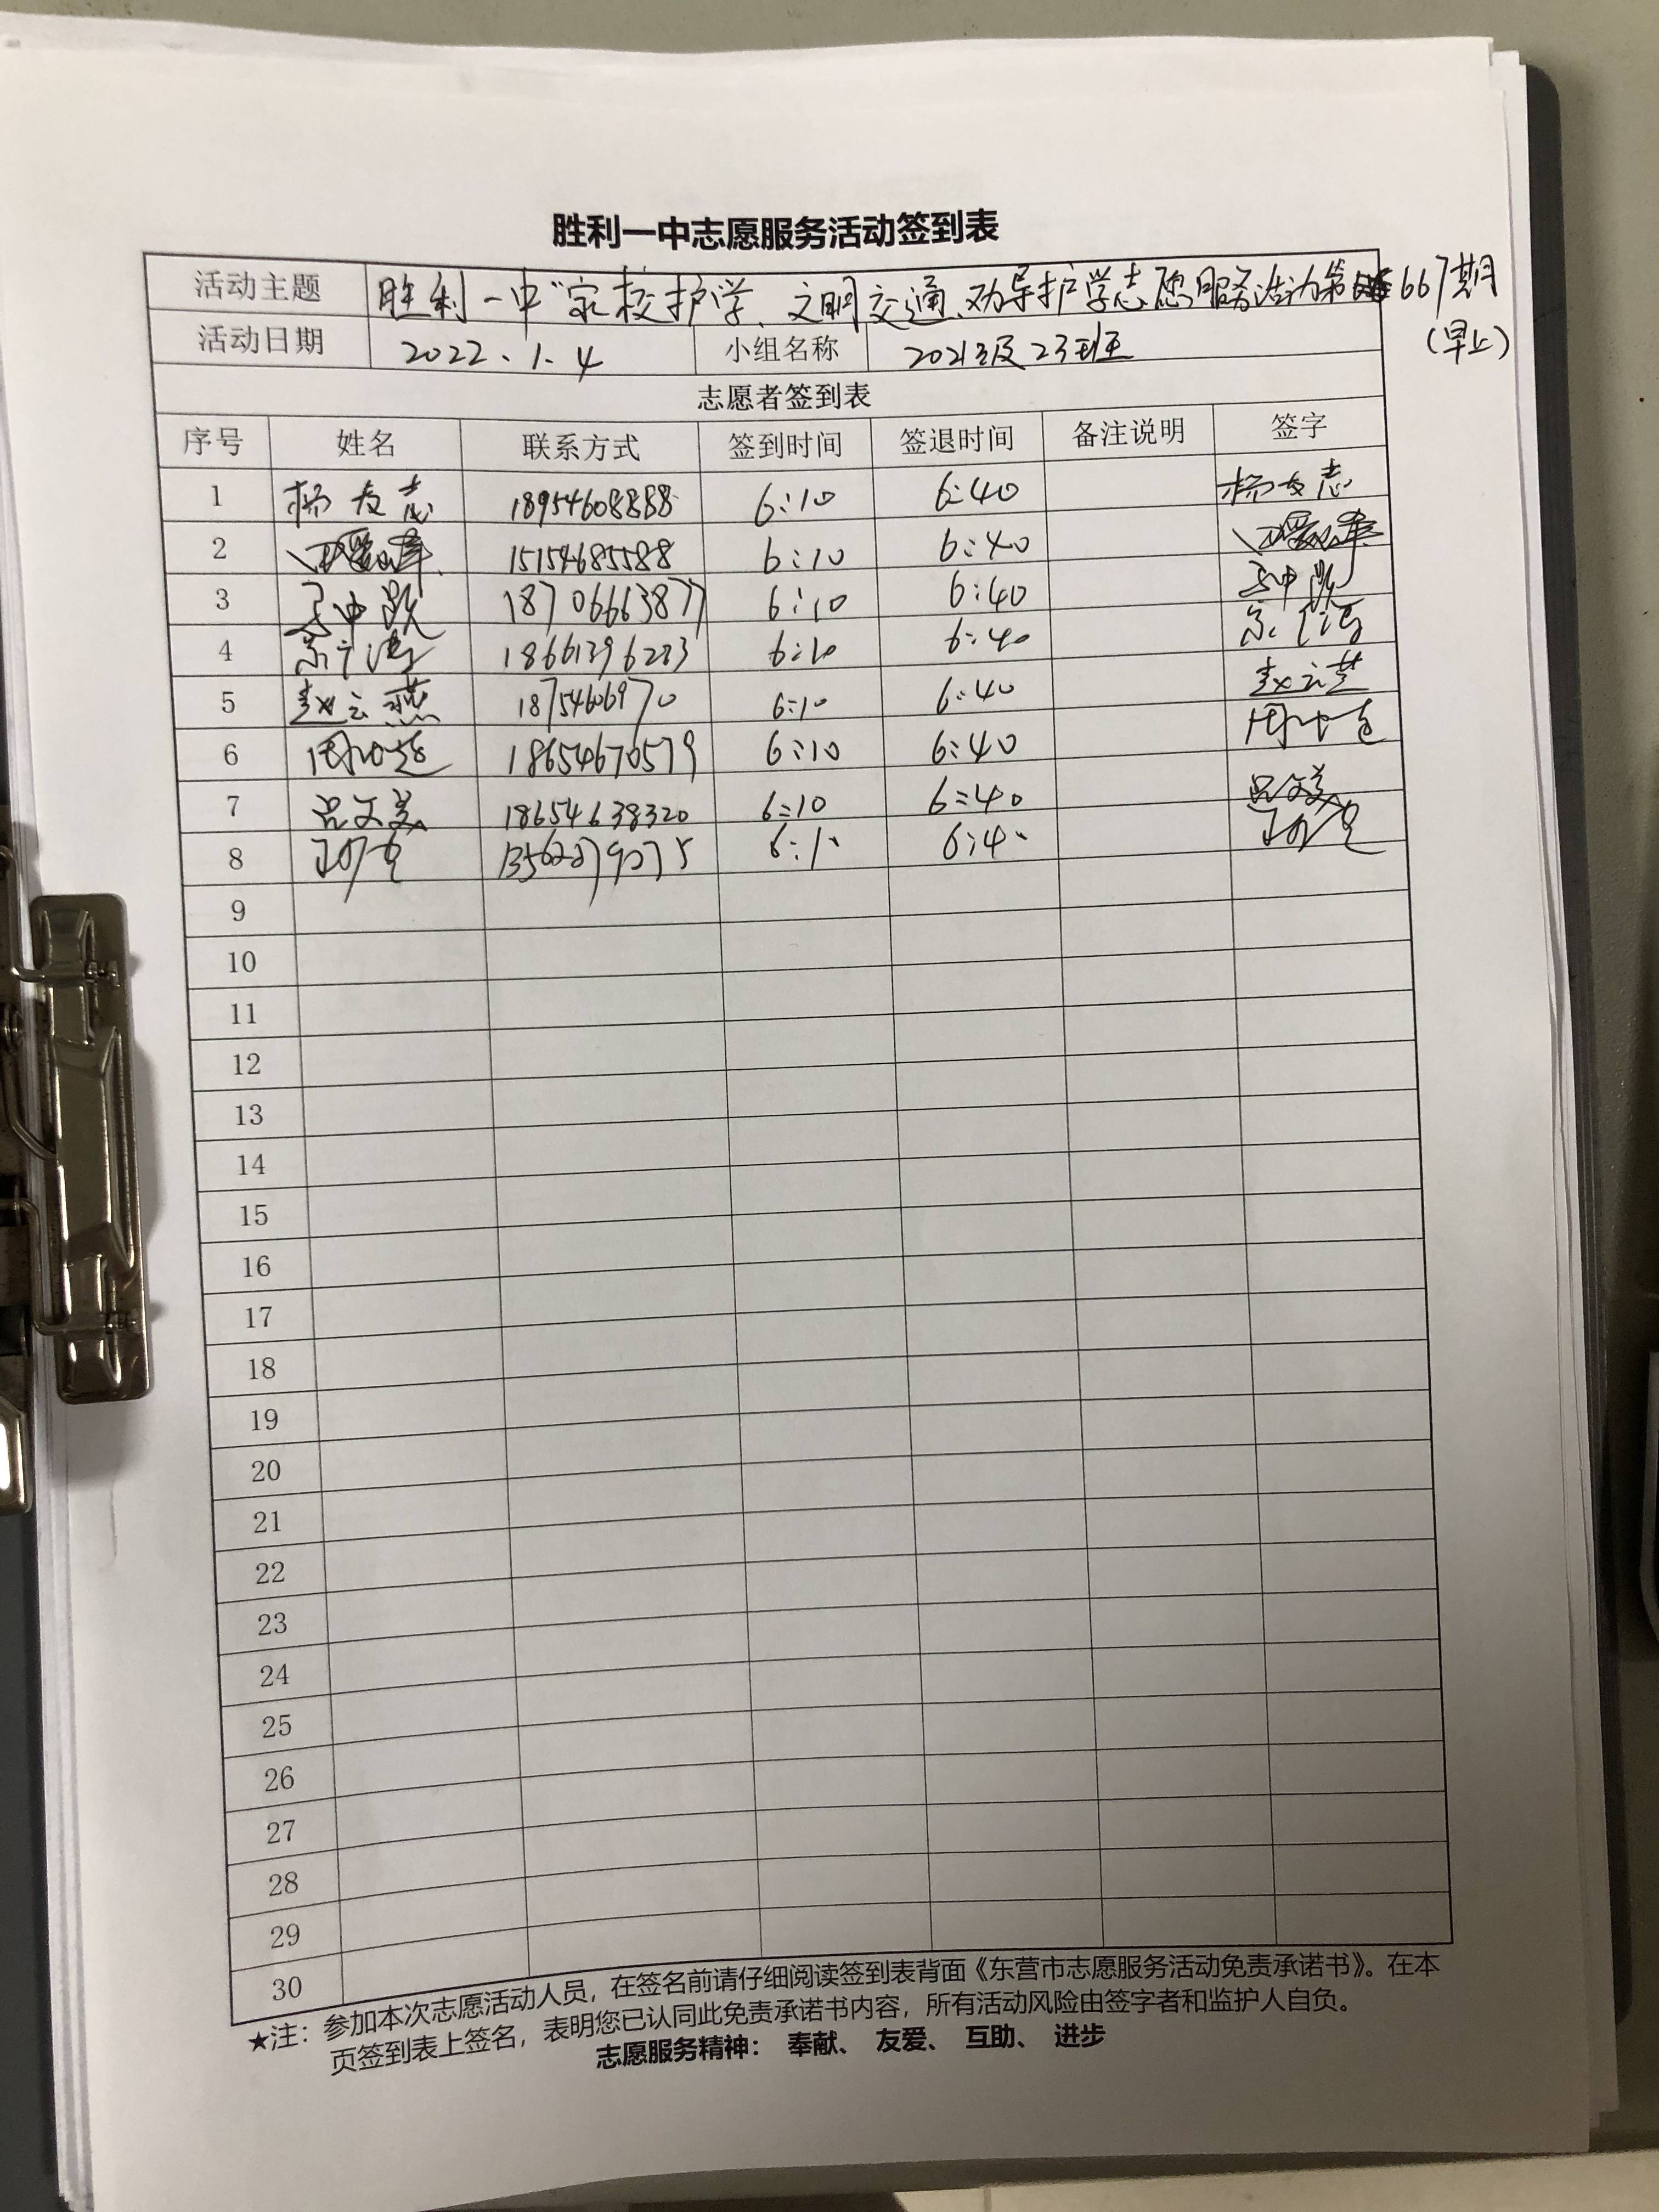 胜利一中志愿服务活动签到表
活动主题 胜利一中“家校护学、文明交通、劝导护学志愿服务活动第667期
(早上)
活动日期 2022.1.4 小组名称 2021级23班
志愿者签到表
序号 姓名 联系方式 签到时间 签退时间 备注说明 签字
1 杨友志 18954608888 6:10 6:40 杨友志
2 15154685588 6:10 6:40
3 18706663877 6:10 6:40
4 18661396283 6:10 6:40
5 赵云燕 18754606970 6:10 6:40 赵云燕
6 18654670579 6:10 6:40
7 吕文美 18654638320 6:10 6:40 吕文美
8 6:10 6:40
9
10
11
12
13
14
15
16
17
18
19
20
21
22
23
24
25
26
27
28
29
30
★注：参加本次志愿活动人员，在签名前请仔细阅读签到表背面《东营市志愿服务活动免责承诺书》。在本
页签到表上签名，表明您已认同此免责承诺书内容，所有活动风险由签字者和监护人自负。
志愿服务精神： 奉献、 友爱、 互助、 进步